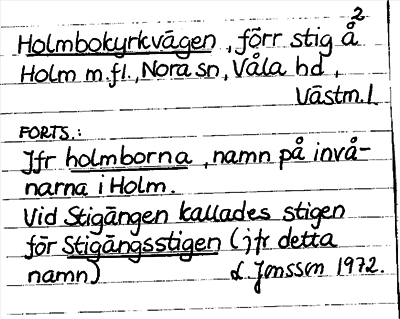 2
Holmbokyrkvägen, förr stig å
Holm m.fl., Nora sn, Våla hd,
Västm.l
FORTS.:
Jfr holmborna, namn på invå-
narna i Holm.
Vid Stigängen kallades stigen
för Stigängsstigen (jfr detta
namn) L. Jonsson 1972.